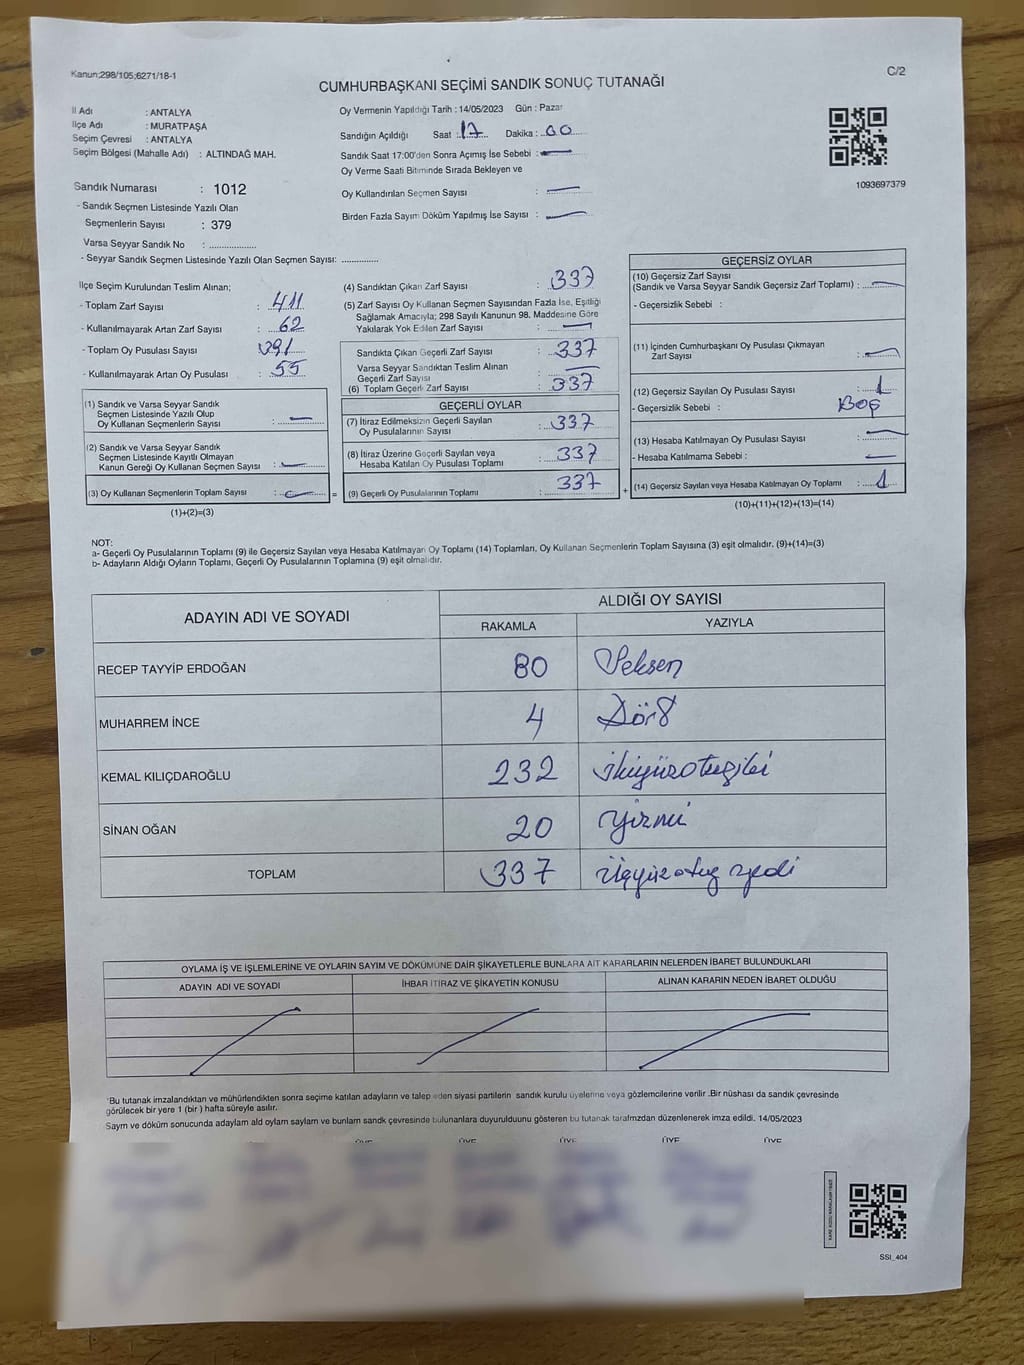 Kanun;298/105;6271/18-1
C/2
CUMHURBAŞKANI SEÇİMİ SANDIK SONUÇ TUTANAĞI
İl Adı : ANTALYA
İlçe Adı : MURATPAŞA
Seçim Çevresi : ANTALYA
Seçim Bölgesi (Mahalle Adı) : ALTINDAĞ MAH.
Oy Vermenin Yapıldığı Tarih : 14/05/2023 Gün : Pazar
Sandığın Açıldığı Saat : 17 Dakika : 00
Sandık Saat 17:00'den Sonra Açımış İse Sebebi : —
Oy Verme Saati Bitiminde Sırada Bekleyen ve
Oy Kullandırılan Seçmen Sayısı : —
Birden Fazla Sayım Döküm Yapılmış İse Sayısı : —
1093697379
Sandık Numarası : 1012
- Sandık Seçmen Listesinde Yazılı Olan
Seçmenlerin Sayısı : 379
Varsa Seyyar Sandık No : ..................
- Seyyar Sandık Seçmen Listesinde Yazılı Olan Seçmen Sayısı: ..............
İlçe Seçim Kurulundan Teslim Alınan;
- Toplam Zarf Sayısı : 411
- Kullanılmayarak Artan Zarf Sayısı : 62
- Toplam Oy Pusulası Sayısı : 391
- Kullanılmayarak Artan Oy Pusulası : 55
(1) Sandık ve Varsa Seyyar Sandık
Seçmen Listesinde Yazılı Olup
Oy Kullanan Seçmenlerin Sayısı : —
(2) Sandık ve Varsa Seyyar Sandık
Seçmen Listesinde Kayıtlı Olmayan
Kanun Gereği Oy Kullanan Seçmen Sayısı : —
(3) Oy Kullanan Seçmenlerin Toplam Sayısı : — =
(1)+(2)=(3)
(4) Sandıktan Çıkan Zarf Sayısı : 337
(5) Zarf Sayısı Oy Kullanan Seçmen Sayısından Fazla İse, Eşitliği
Sağlamak Amacıyla; 298 Sayılı Kanunun 98. Maddesine Göre
Yakılarak Yok Edilen Zarf Sayısı : —
Sandıkta Çıkan Geçerli Zarf Sayısı : 337
Varsa Seyyar Sandıktan Teslim Alınan
Geçerli Zarf Sayısı : —
(6) Toplam Geçerli Zarf Sayısı : 337
GEÇERLİ OYLAR
(7) İtiraz Edilmeksizin Geçerli Sayılan
Oy Pusulalarının Sayısı : 337
(8) İtiraz Üzerine Geçerli Sayılan veya
Hesaba Katılan Oy Pusulası Toplamı : 337
(9) Geçerli Oy Pusulalarının Toplamı : 337 +
GEÇERSİZ OYLAR
(10) Geçersiz Zarf Sayısı
(Sandık ve Varsa Seyyar Sandık Geçersiz Zarf Toplamı) : —
- Geçersizlik Sebebi :
(11) İçinden Cumhurbaşkanı Oy Pusulası Çıkmayan
Zarf Sayısı : —
(12) Geçersiz Sayılan Oy Pusulası Sayısı : 1
- Geçersizlik Sebebi : Boş
(13) Hesaba Katılmayan Oy Pusulası Sayısı : —
- Hesaba Katılmama Sebebi : —
(14) Geçersiz Sayılan veya Hesaba Katılmayan Oy Toplamı : 1
(10)+(11)+(12)+(13)=(14)
NOT:
a- Geçerli Oy Pusulalarının Toplamı (9) ile Geçersiz Sayılan veya Hesaba Katılmayan Oy Toplamı (14) Toplamları, Oy Kullanan Seçmenlerin Toplam Sayısına (3) eşit olmalıdır. (9)+(14)=(3)
b- Adayların Aldığı Oyların Toplamı, Geçerli Oy Pusulalarının Toplamına (9) eşit olmalıdır.
ADAYIN ADI VE SOYADI ALDIĞI OY SAYISI
RAKAMLA YAZIYLA
RECEP TAYYİP ERDOĞAN 80 Seksen
MUHARREM İNCE 4 Dört
KEMAL KILIÇDAROĞLU 232 ikiyüzotuziki
SİNAN OĞAN 20 Yirmi
TOPLAM 337 üçyüzotuz yedi
OYLAMA İŞ VE İŞLEMLERİNE VE OYLARIN SAYIM VE DÖKÜMÜNE DAİR ŞİKAYETLERLE BUNLARA AİT KARARLARIN NELERDEN İBARET BULUNDUKLARI
ADAYIN ADI VE SOYADI İHBAR İTİRAZ VE ŞİKAYETİN KONUSU ALINAN KARARIN NEDEN İBARET OLDUĞU
*Bu tutanak imzalandıktan ve mühürlendikten sonra seçime katılan adayların ve talep eden siyasi partilerin sandık kurulu üyelerine veya gözlemcilerine verilir .Bir nüshası da sandık çevresinde
görülecek bir yere 1 (bir ) hafta süreyle asılır.
Sayım ve döküm sonucunda adaylam ald oylam saylam ve bunlam sandk çevresinde bulunanlara duyurulduunu gösteren bu tutanak tarafmzdan düzenlenerek imza edildi. 14/05/2023
ÜYE ÜYE ÜYE ÜYE ÜYE
SSI_404